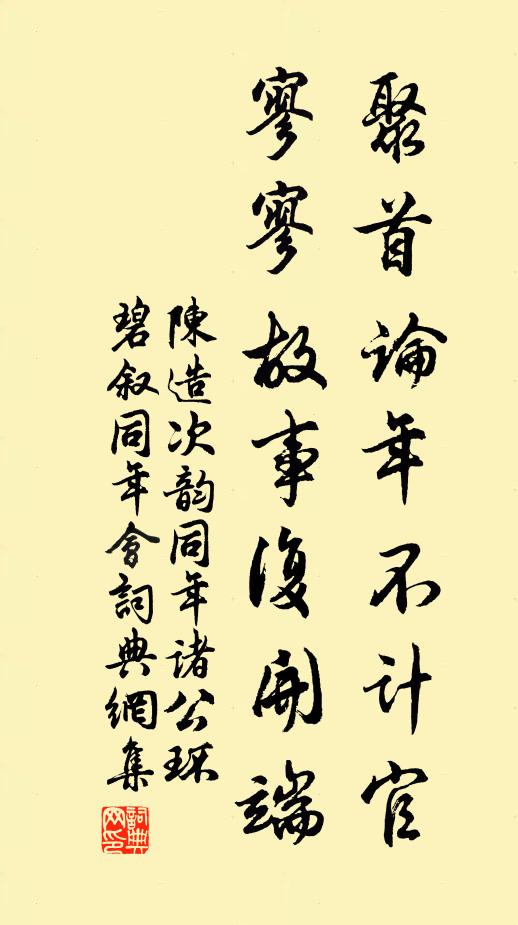 聚首論年不計官
寥寥故事復開端
陳造次韵同年諸公環
碧叙同年會詞典網集
詞典
网印